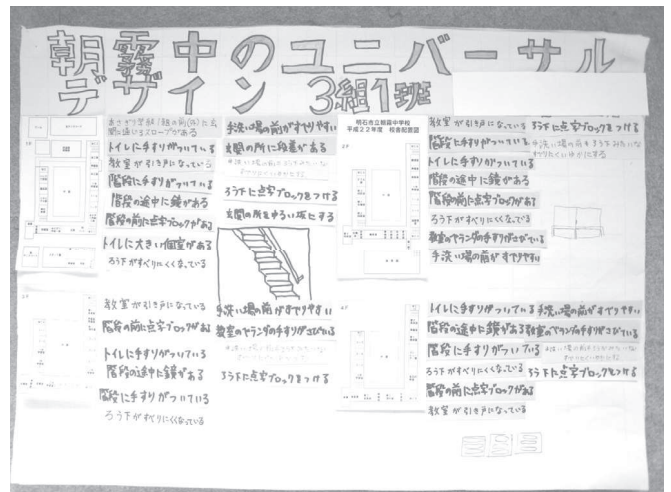 朝霧中のユニバーサル
デザイン 3組1班
トイレに手すりがついている
教室が引き戸になっている
階段に手すりがついている
階段の途中に鏡がある
階段の前に点字ブロックがある
トイレに大きい個室がある
ろう下がすべりにくくなっている
手洗い場の前がすべりやすい
玄関の所に段差がある
ろう下に点字ブロックをつける
玄関の所をゆるい坂にする
明石市立朝霧中学校
平成22年度 校舎配置図
教室が引き戸になっている
階段に手すりがついている
トイレに手すりがついている
階段の途中に鏡がある
階段の前に点字ブロックがある
ろう下がすべりにくくなっている
教室のベランダの手すりがさびている
手洗い場の前がすべりやすい
ろう下に点字ブロックをつける
教室が引き戸になっている
階段の前に点字ブロックがある
トイレに手すりがついている
階段の途中に鏡がある
階段に手すりがついている
ろう下がすべりにくくなっている
手洗い場の前がすべりやすい
教室のベランダの手すりがさびている
ろう下に点字ブロックをつける
トイレに手すりがついている
階段の途中に鏡がある
階段に手すりがついている
ろう下がすべりにくくなっている
階段の前に点字ブロックがある
教室が引き戸になっている
手洗い場の前がすべりやすい
教室のベランダの手すりがさびている
ろう下に点字ブロックをつける